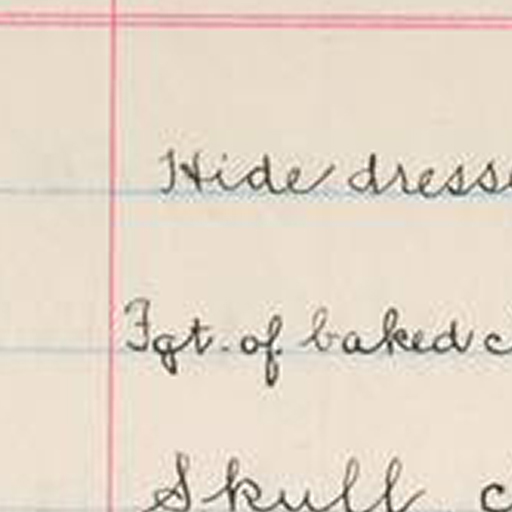 Hide dresse
Fgt. of baked c
Skull c